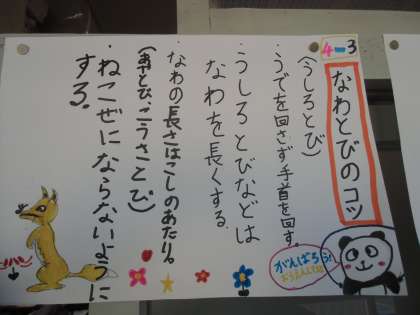 4-3
なわとびのコツ
(うしろとび)
・うでを回さず手首を回す。
・うしろとびなどは
なわを長くする。
・なわの長さはこしのあたり。
(あやとび、こうさとび)
・ねこぜにならないように
する。
がんばろう!